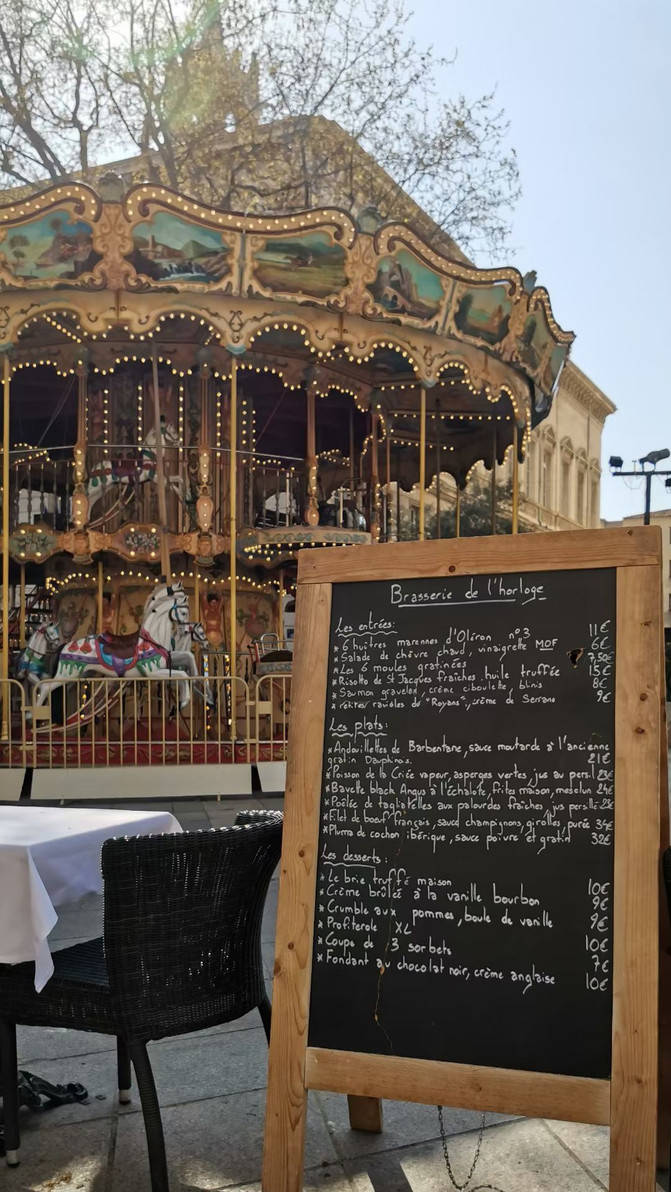 Brasserie de l'horloge
Les entrées:
* 6 huîtres marennes d'Oléron n°3 11€
* Salade de chèvre chaud, vinaigrette MOF 6€
* Les 6 moules gratinées 7,50€
* Risotto de St Jacques fraîches, huile truffée 15€
* Saumon gravelax, crème ciboulette, blinis 8€
ravioles de "Royans", crème de Serrano 9€
Les plats:
* Andouillettes de Barbentane, sauce moutarde à l'ancienne
gratin Dauphinois 21€
* Poisson de la Criée vapeur, asperges vertes, jus au persil 23€
* Bavette black Angus à l'échalote, frites maison, mesclun 24€
* Poêlée de tagliatelles aux palourdes fraîches, jus persillé 23€
* Filet de boeuf français, sauce champignons, girolles, purée 34€
* Pluma de cochon ibérique, sauce poivre et gratin 32€
Les desserts:
* Le brie truffé maison 10€
* Crème brûlée à la vanille bourbon 9€
* Crumble aux pommes, boule de vanille 9€
* Profiterole XL 10€
* Coupe de 3 sorbets 7€
* Fondant au chocolat noir, crème anglaise 10€